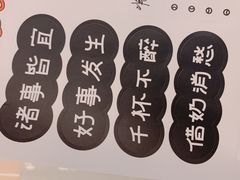 诸事皆宜
好事发生
千杯不醉
借奶消愁